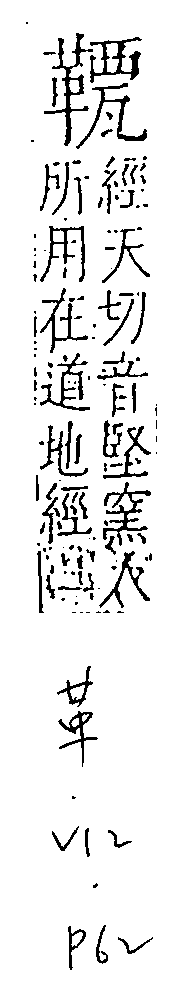 經天切音堅窯
所用在道地經
革
·
V12
·
P62